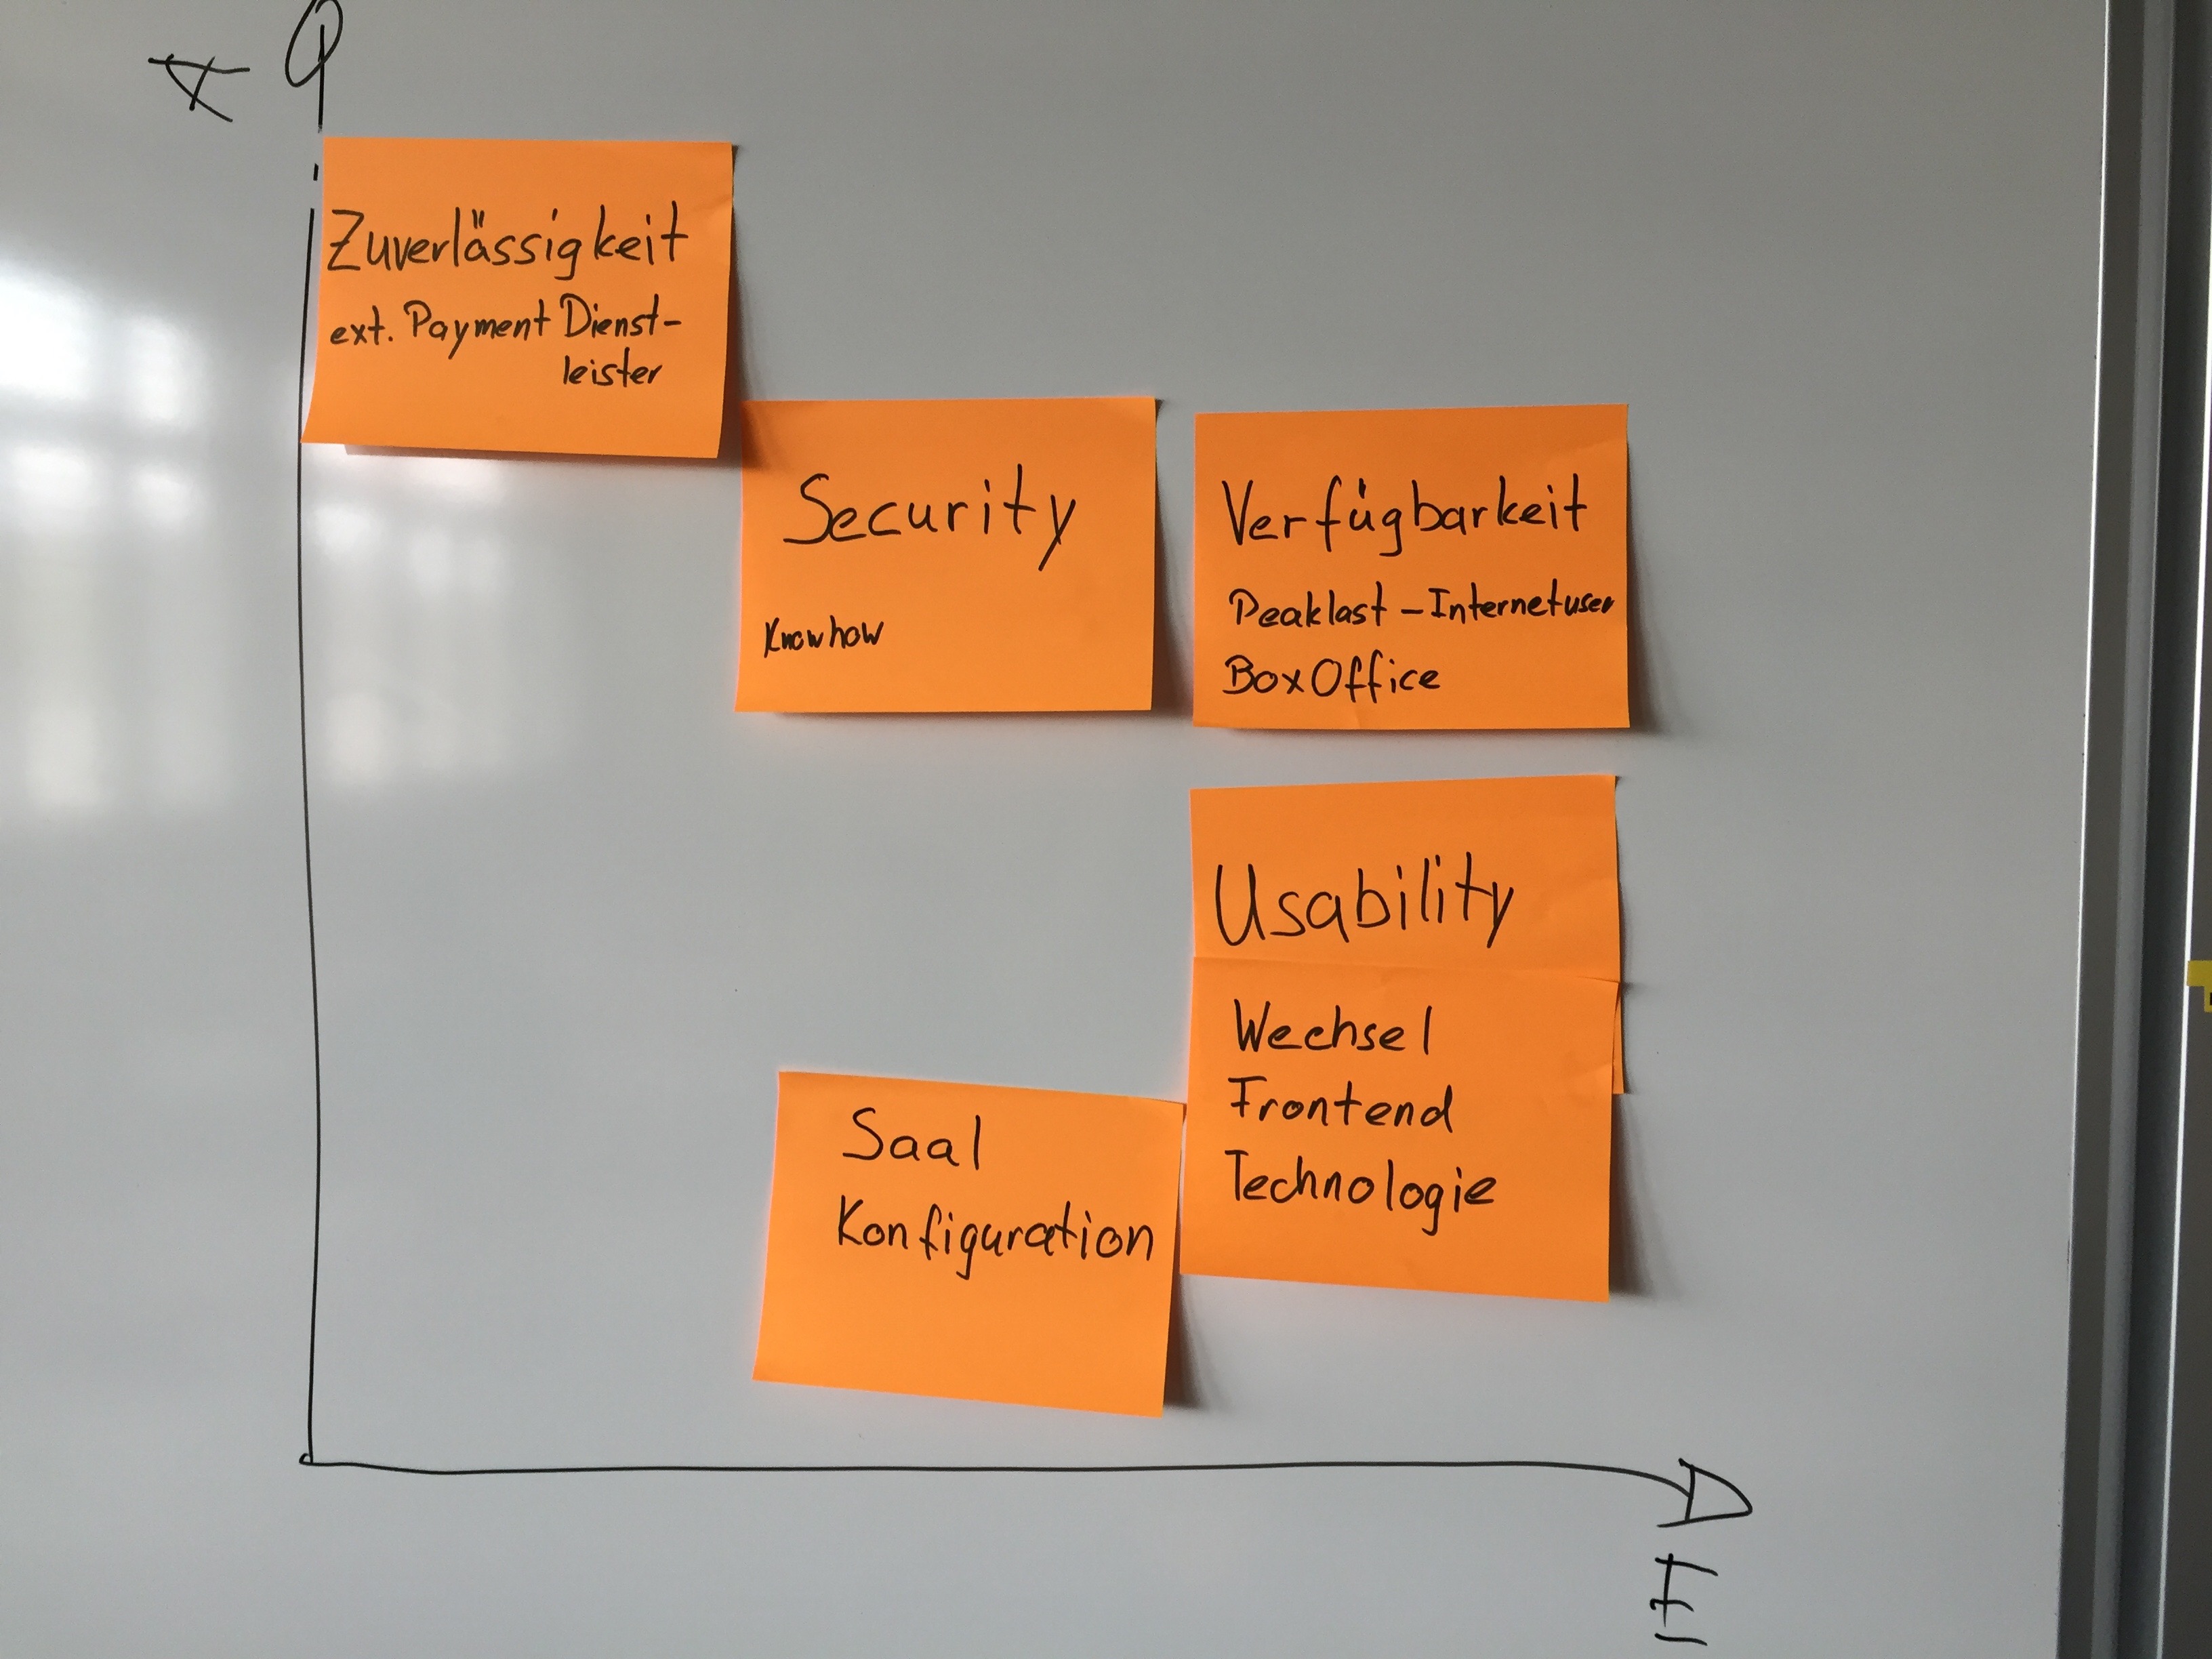 Zuverlässigkeit
ext. Payment Dienst-
leister
Security
Knowhow
Verfügbarkeit
Peaklast – Internetuser
BoxOffice
Usability
Wechsel
Frontend
Technologie
Saal
Konfiguration
E